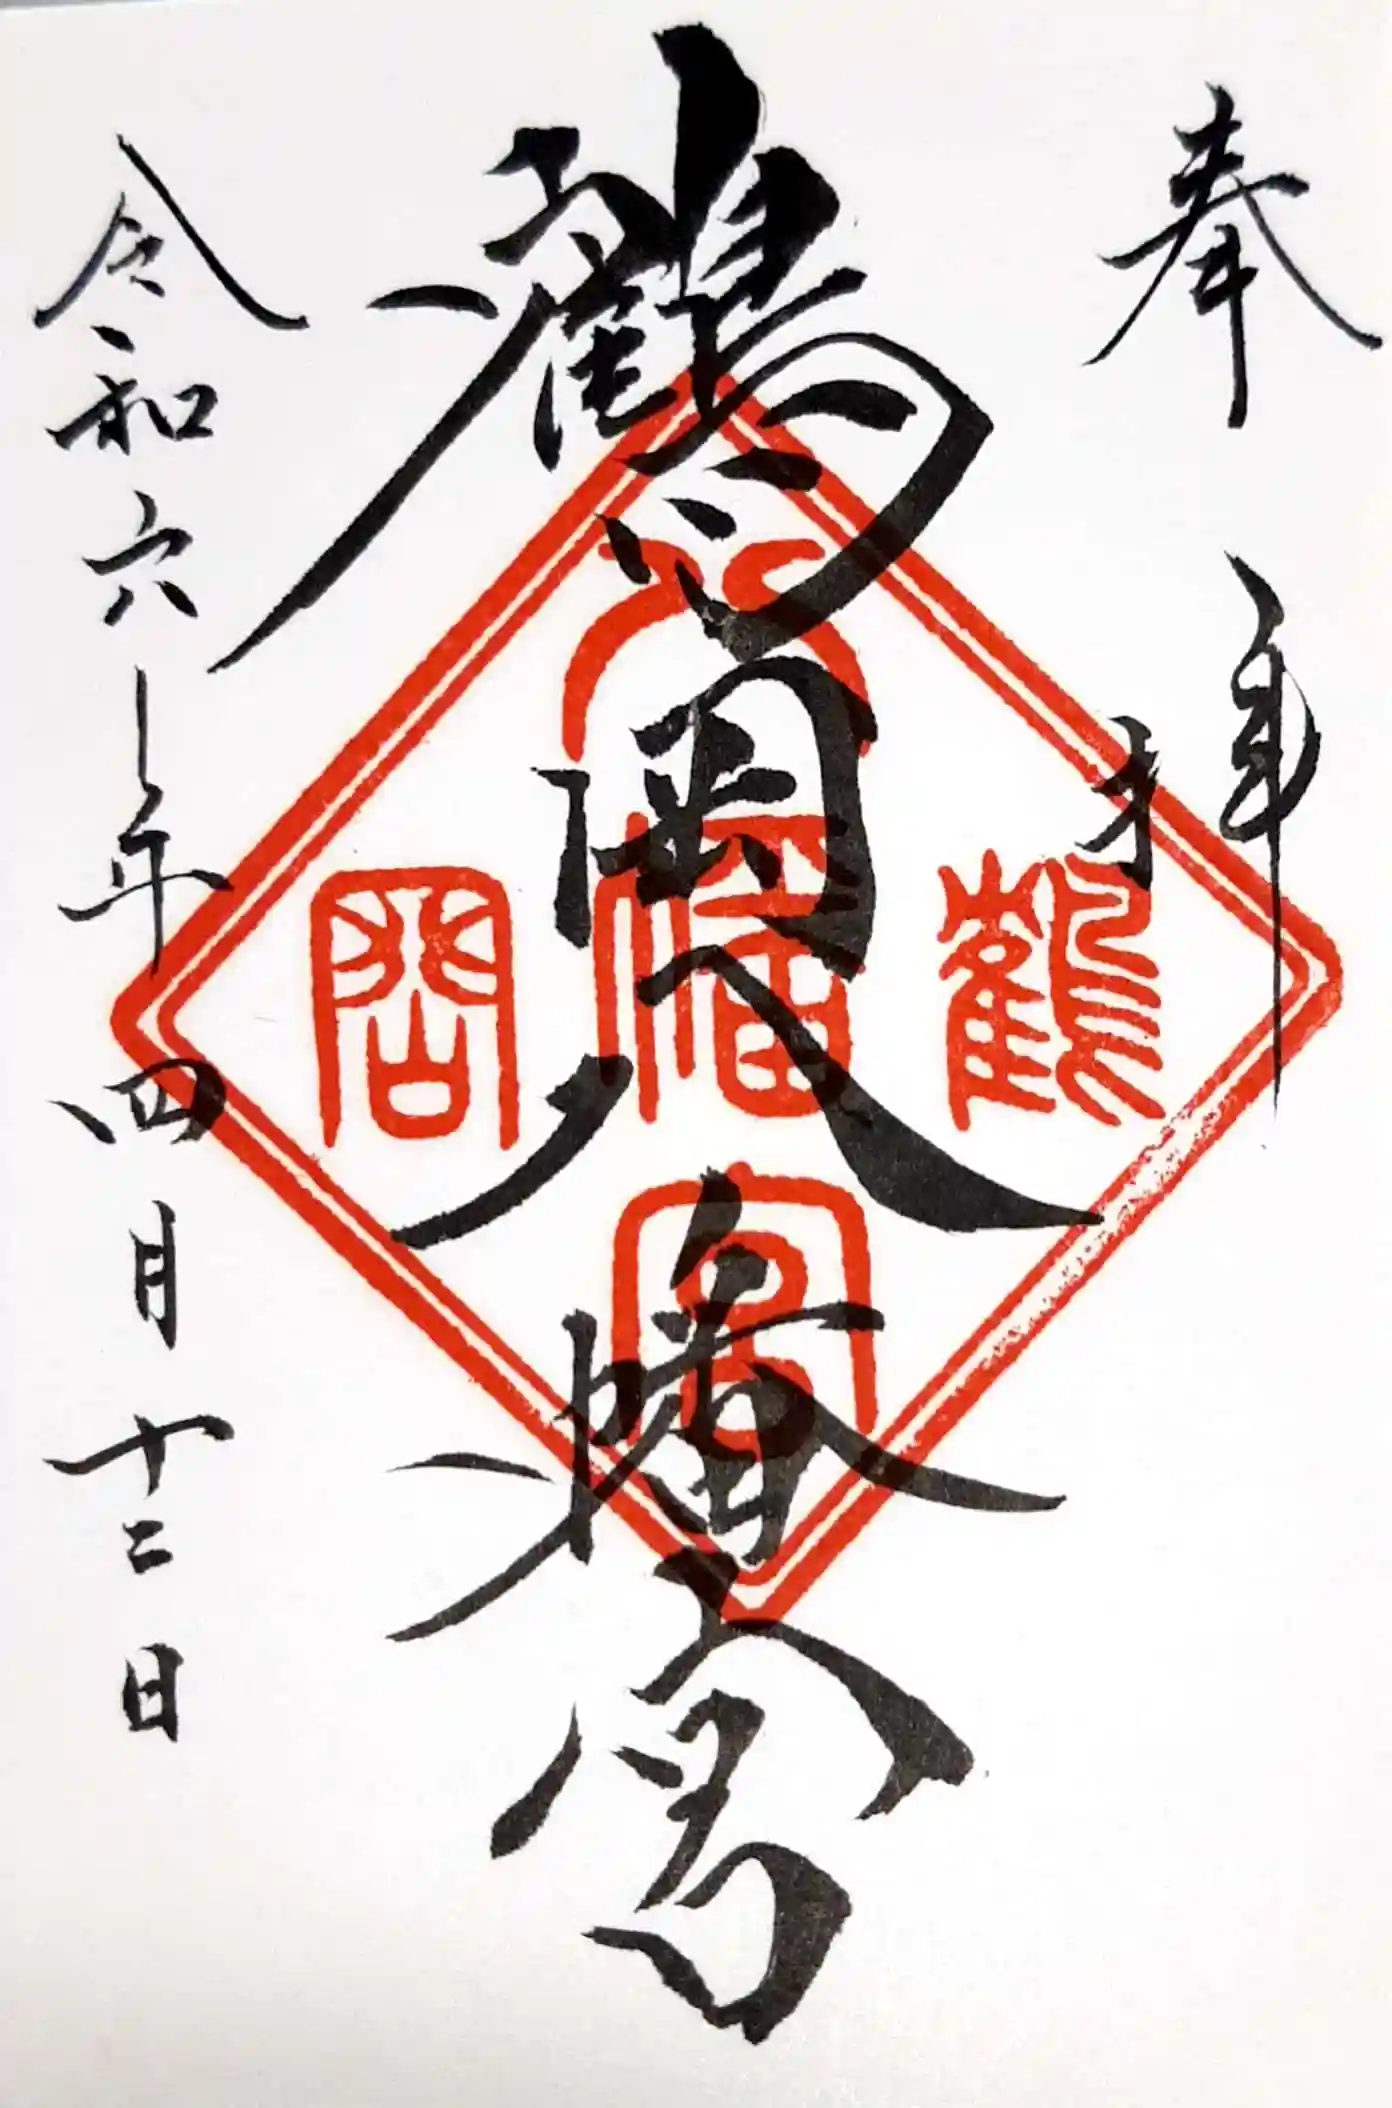 奉拝
鶴岡八幡宮
鶴
八幡宮
岡
令和六年四月十二日